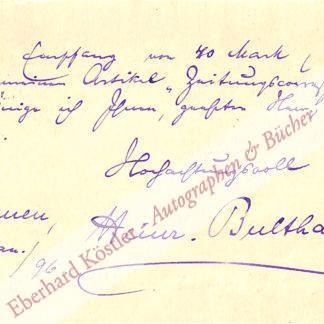 Empfang von 40 Mark
meinen Artikel „Zeitungs
ich Ihnen, geehrter Herr
Hochachtungsvoll
Heinr. Bultha
96
Eberhard Köstler Autographen & Bücher